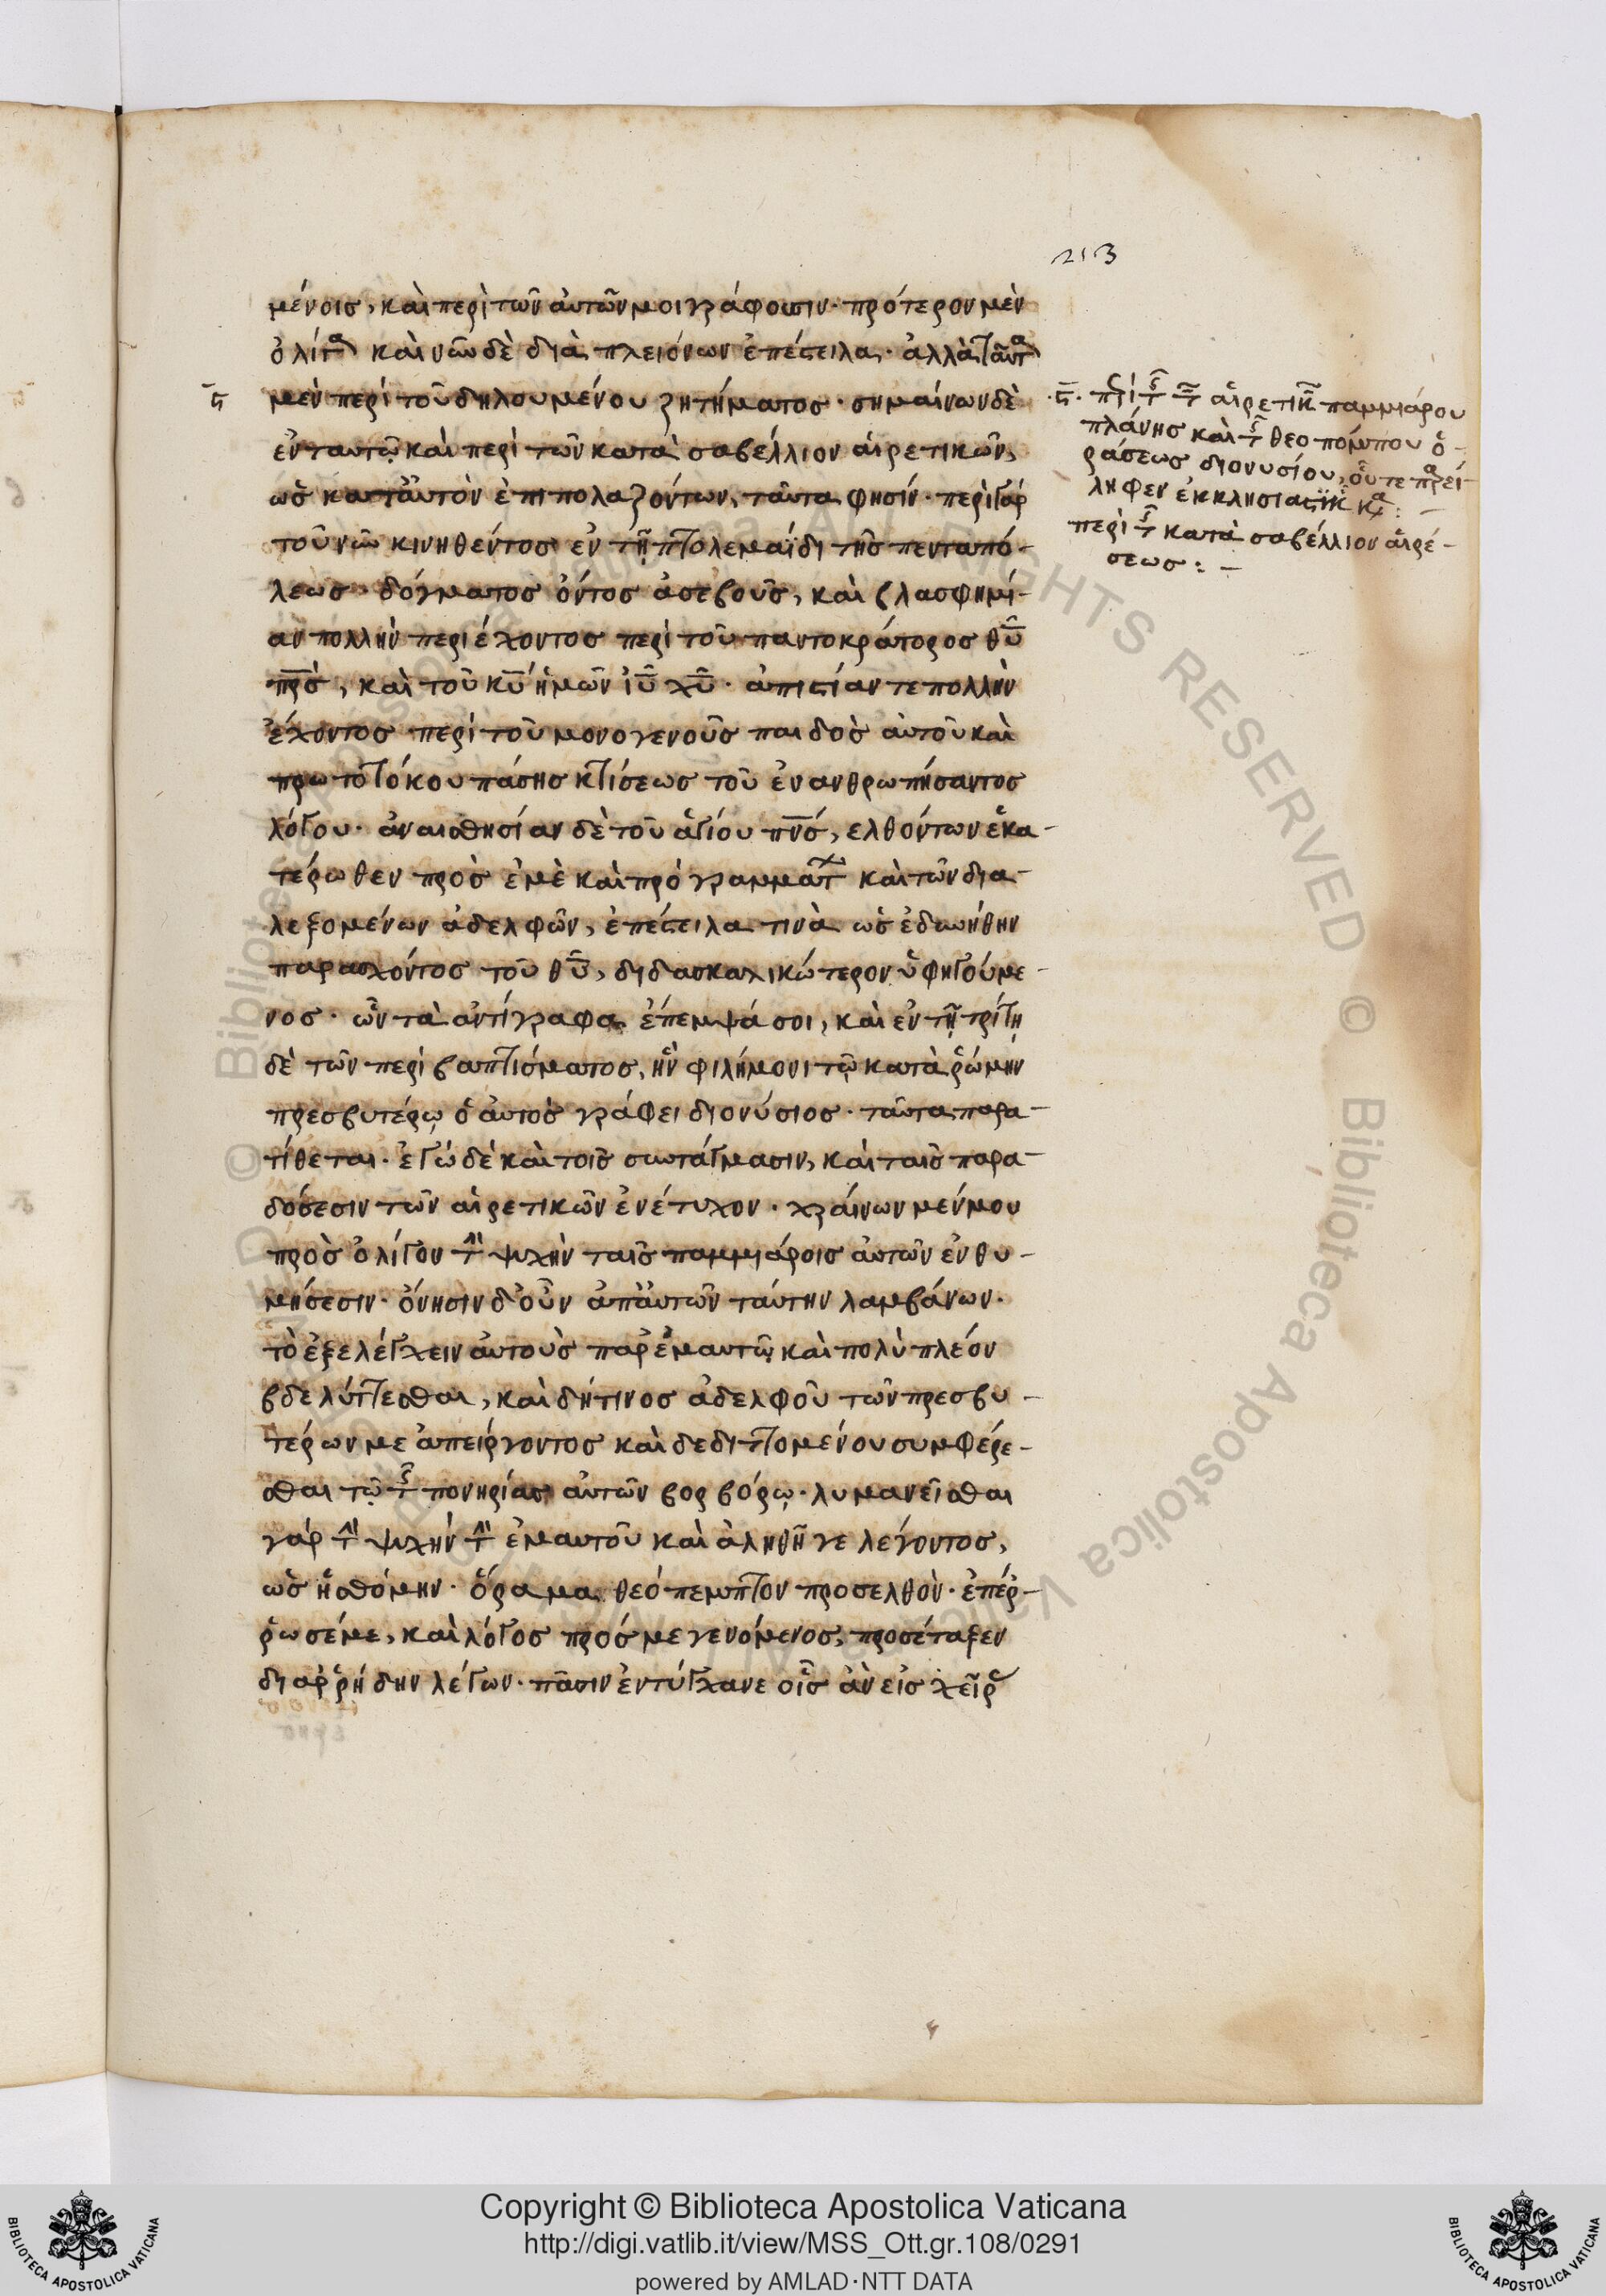 213
μένοις, καὶ περὶ τῶν αὐτῶν μοι γράφουσιν· πρότερον μὲν
ὀλίγα καὶ νῦν δὲ διὰ πλειόνων ἐπέστειλα· ἀλλὰ ταῦτα
ϛ μὲν περὶ τοῦ δηλουμένου ζητήματος· σημαίνων δὲ
ἐν ταυτῶ καὶ περὶ τῶν κατὰ σαβέλλιον αἱρετικῶν,
ὡς κατ' αὐτὸν ἐπιπολαζόντων, ταῦτα φησίν· περὶ γὰρ
τοῦ νῦν κινηθέντος ἐν τῇ πτολεμαΐδι τῆς πενταπό-
λεως δόγματος ὄντος ἀσεβοῦς, καὶ βλασφημί-
αν πολλὴν περιέχοντος περὶ τοῦ παντοκράτορος θῡ
πρ̄ς, καὶ τοῦ κῡ ἡμῶν ἰῡ χῡ· ἀπιστίαν τε πολλὴν
ἔχοντος περὶ τοῦ μονογενοῦς παιδὸς αὐτοῦ καὶ
πρωτοτόκου πάσης κτίσεως τοῦ ἐνανθρωπήσαντος
λόγου· ἀναισθησίαν δὲ τοῦ ἁγίου πν̄ς, ελθόντων ἑκα-
τέρωθεν πρὸς ἐμὲ καὶ προγραμμάτων καὶ τῶν δια-
λεξομένων ἀδελφῶν, ἐπέστειλα τινὰ ὡς ἐδυνήθην
παρασχόντος τοῦ θῡ, διδασκαλικώτερον ὑφηγούμε-
νος· ὧν τὰ ἀντίγραφα ἔπεμψά σοι, καὶ ἐν τῇ τρίτῃ
δὲ τῶν περὶ βαπτίσματος, ἣν φιλήμονι τῷ κατὰ ῥώμην
πρεσβυτέρῳ ὁ αὐτὸς γράφει διονύσιος· ταῦτα παρα-
τίθεται· ἐγὼ δὲ καὶ τοῖς συντάγμασιν, καὶ ταῖς παρα-
δόσεσιν τῶν αἱρετικῶν ἐνέτυχον· χραίνων μέν μου
πρὸς ὀλίγον τὴν ψυχὴν ταῖς παμμιάροις αὐτῶν ἐνθυ-
μήσεσιν· ὄνησιν δ' οὖν ἀπ' αὐτῶν ταύτην λαμβάνων·
τὸ ἐξελέγχειν αὐτοὺς παρ' ἐμαυτῷ καὶ πολὺ πλέον
βδελύττεσθαι, καὶ δή τινος ἀδελφοῦ τῶν πρεσβυ-
τέρων με ἀπείργοντος καὶ δεδιττομένου συμφέρε-
σθαι τῷ τῆς πονηρίας αὐτῶν βορβόρῳ· λυμανεῖσθαι
γὰρ τὴν ψυχήν τὴν ἐμαυτοῦ καὶ ἀληθῆ γε λέγοντος,
ὡς ᾐσθόμην· ὅραμα θεόπεμπτον προσελθὸν· ἐπέρ-
ῥωσέ με, καὶ λόγος πρός με γενόμενος, προσέταξεν
διαῤῥήδην λέγων· πᾶσιν ἐντύγχανε οἷς ἂν εἰς χεῖρας
·ϛ· περὶ τῆς τῶν αἱρετικῶν παμμιάρου
πλάνης καὶ τῆς θεοπόμπου ὁ-
ράσεως διονυσίου, οὗ τε παρεί-
ληφεν ἐκκλησιαστικ
περὶ τῆς κατὰ σαβέλλιον αἱρέ-
σεως:-
Copyright © Biblioteca Apostolica Vaticana
http://digi.vatlib.it/view/MSS_Ott.gr.108/0291
powered by AMLAD·NTT DATA
BIBLIOTECA APOSTOLICA VATICANA
BIBLIOTECA APOSTOLICA VATICANA